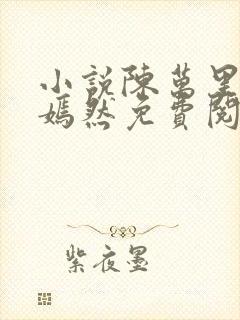 小說陳萬里
嫣然免費閱
紫夜墨